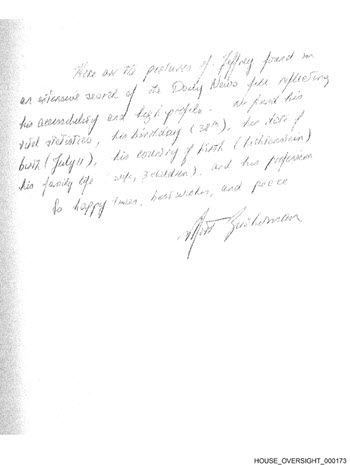 Here are the pictures of Jeffrey found in
an extensive search of the Daily News files reflecting
his accessibility and high profile. We found his
vital statistics, his birthday (38th), his date of
birth (July 11), his country of birth (Liechtenstein)
his family life wife, 3 children), and his profession
So happy times, best wishes, and peace
Mort Zuckerman
HOUSE_OVERSIGHT_000173